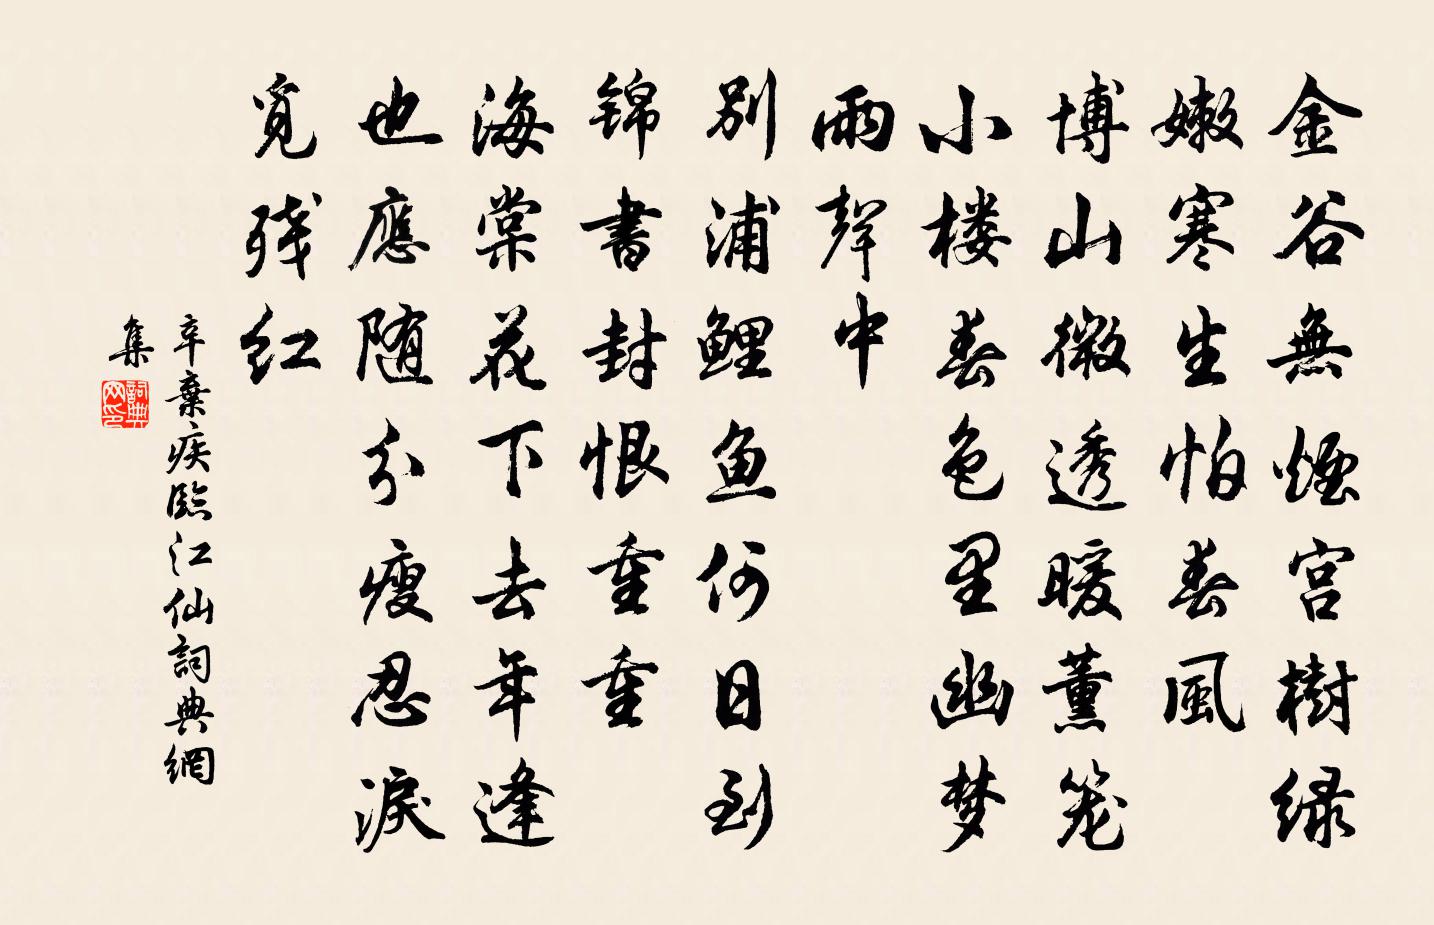 金谷無煙宮樹緑
嫩寒生怕春風
博山微透暖薰笼
小楼春色里幽梦
雨聲中
别浦鲤魚何日到
锦書封恨重重
海棠花下去年逢
也應随分瘦忍淚
覓残红
辛棄疾臨江仙詞典網
集
詞典网印